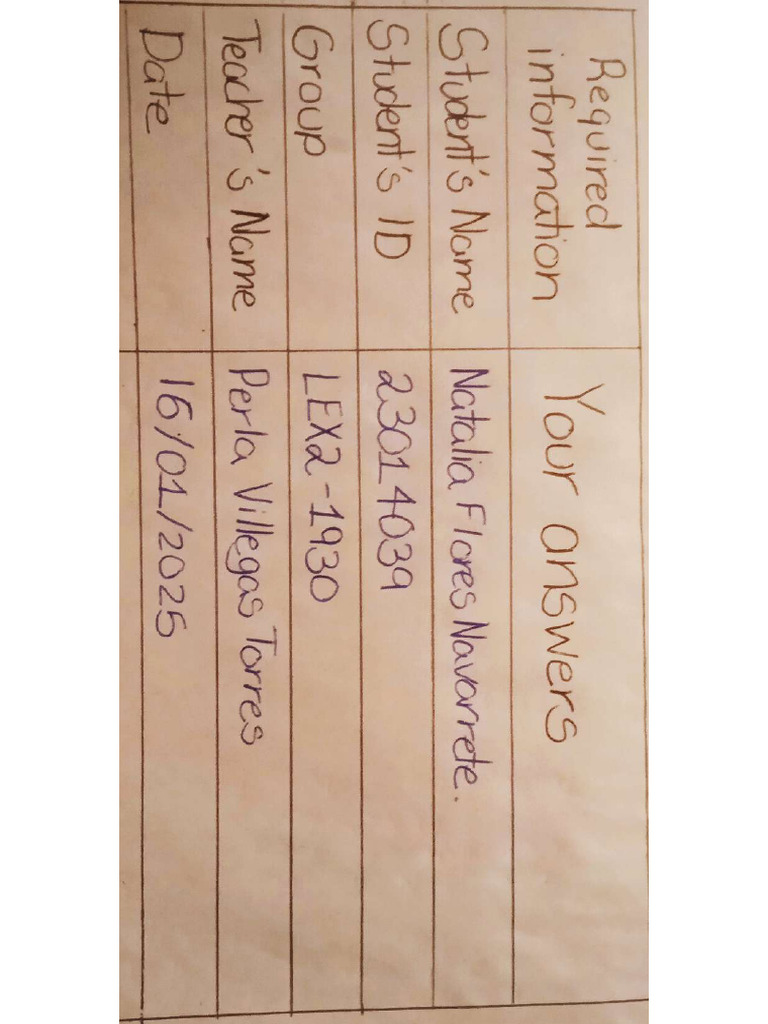 Required
information
Your answers
Student's Name
Natalia Flores Navarrete.
Student's ID
23014039
Group
LEX2-1930
Teacher's Name
Perla Villegas Torres
Date
16/01/2025